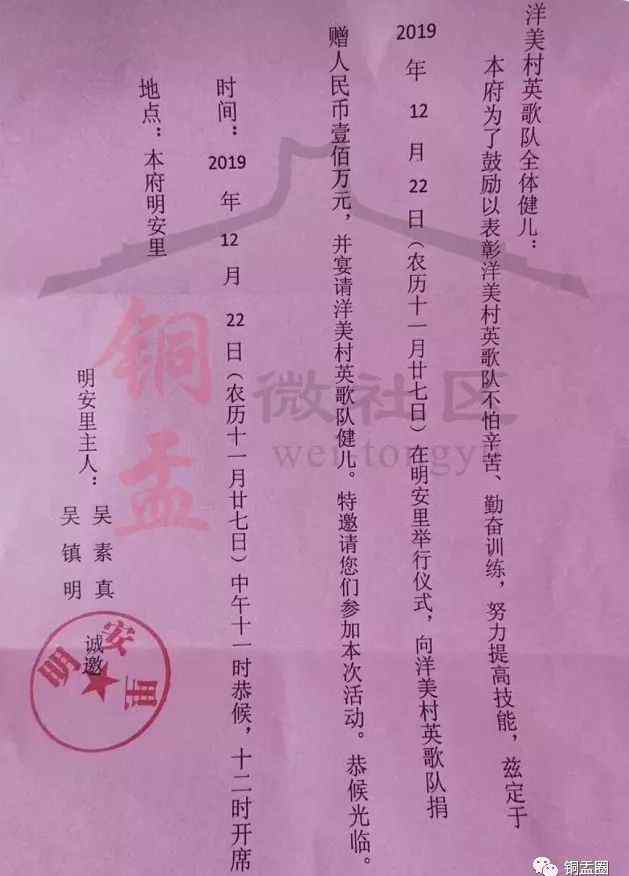 洋美村英歌队全体健儿：
本府为了鼓励以表彰洋美村英歌队不怕辛苦、勤奋训练，努力提高技能，兹定于
2019年12月22日（农历十一月廿七日）在明安里举行仪式，向洋美村英歌队捐
赠人民币壹佰万元，并宴请洋美村英歌队健儿。特邀请您们参加本次活动。恭候光临。
时间：2019年12月22日（农历十一月廿七日）中午十一时恭候，十二时开席
地点：本府明安里
明安里主人：
吴素真
吴镇明
诚邀
明安里
铜盂
微社区
wei tongyu
铜盂圈